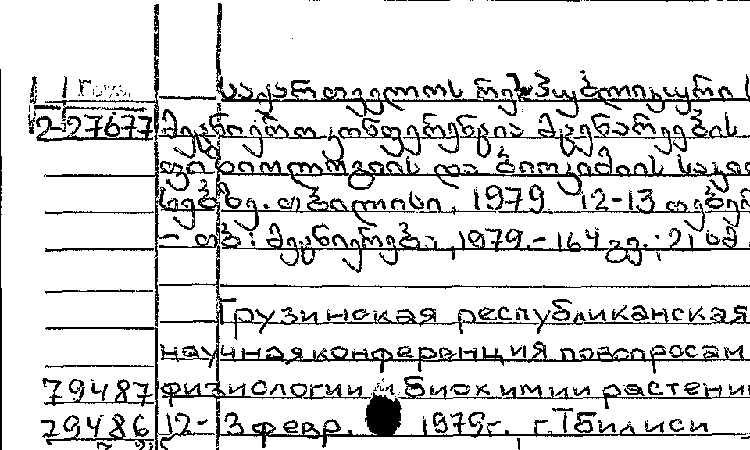 საქართველოს რესპუბლიკური
2-27677 მეცნიერო კონფერენცია მცენარეების
ფიზიოლოგიის და ბიოქიმიის
თბილისი, 1979 12-13
- თბ.: მეცნიერება, 1979.- 164 გვ.; 21 სმ
Грузинская республиканская
научная конференция по вопросам
79487 физиологии и биохимии
79486 12- 3 февр. 1979г. г.Тбилиси